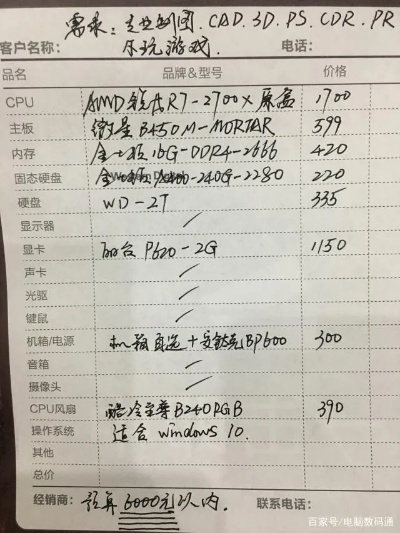 需求：专业制图.CAD.3D.PS.CDR.PR
客户名称： 不玩游戏. 电话：
品名 品牌&型号 价格
CPU AMD锐龙R7-2700X原盒 1700
主板 微星B450M-MORTAR 599
内存 金士顿16G-DDR4-2666 420
固态硬盘 金士顿A400-240G-2280 220
硬盘 WD-2T 335
显示器 /
显卡 丽台P620-2G 1150
声卡 /
光驱 /
键鼠 /
机箱/电源 机箱自选+安钛克BP600 300
音箱 /
摄像头 /
CPU风扇 酷冷至尊B240RGB 390
操作系统 适合windows 10.
其他
总价
经销商： 预算6000元以内. 联系电话：
百家号/电脑数码通